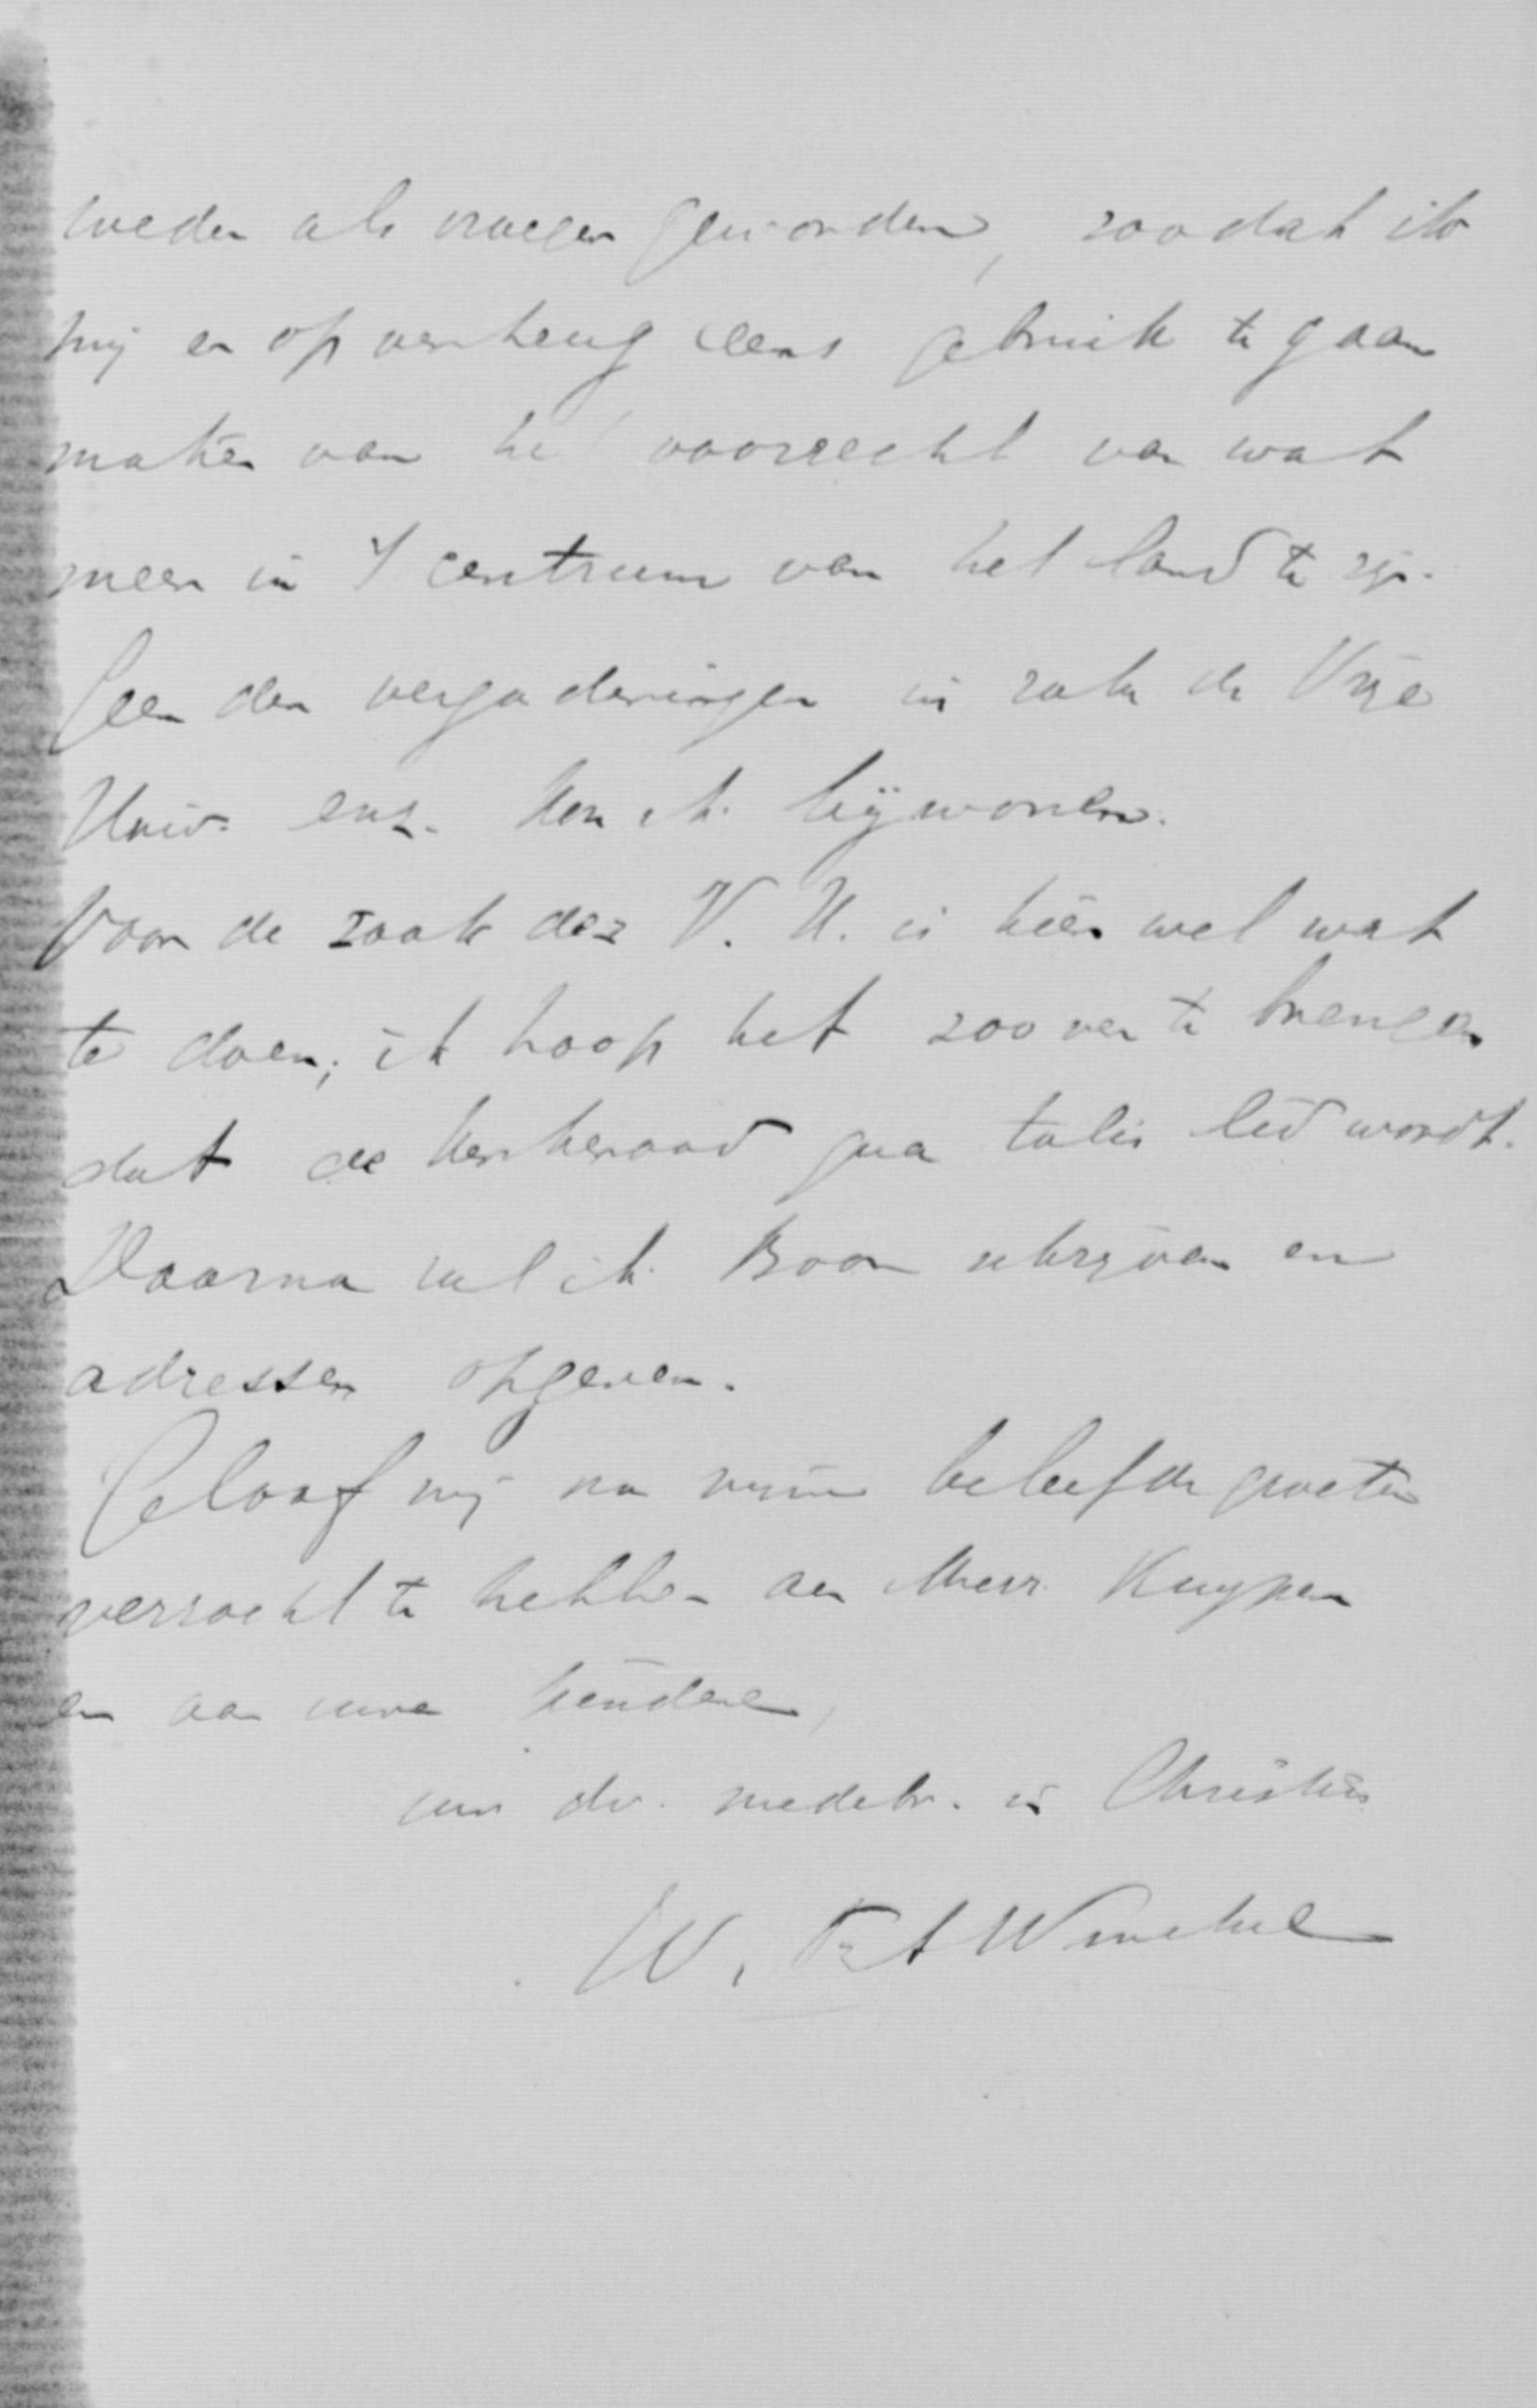 weder als vroeger geworden, zoodat ik
mij er op verheug eens gebruik te gaan
maken van het voorrecht van wat
meer in 't centrum van het land te zijn.
Een der vergaderingen in zake de Vrije
Univ. enz. kon ik bijwonen.
Voor de zaak der V. U. is hier wel wat
te doen; ik hoop het zoover te brengen
dat de kerkeraad qua talis lid wordt.
Daarna zal ik Boon schrijven en
adressen opgeven.
Geloof mij na mijne beleefde groeten
verzocht te hebben aan Mevr. Kuyper
en aan uwe kinderen,
uw dv. medebr. in Christus
W. F. A. Winckel